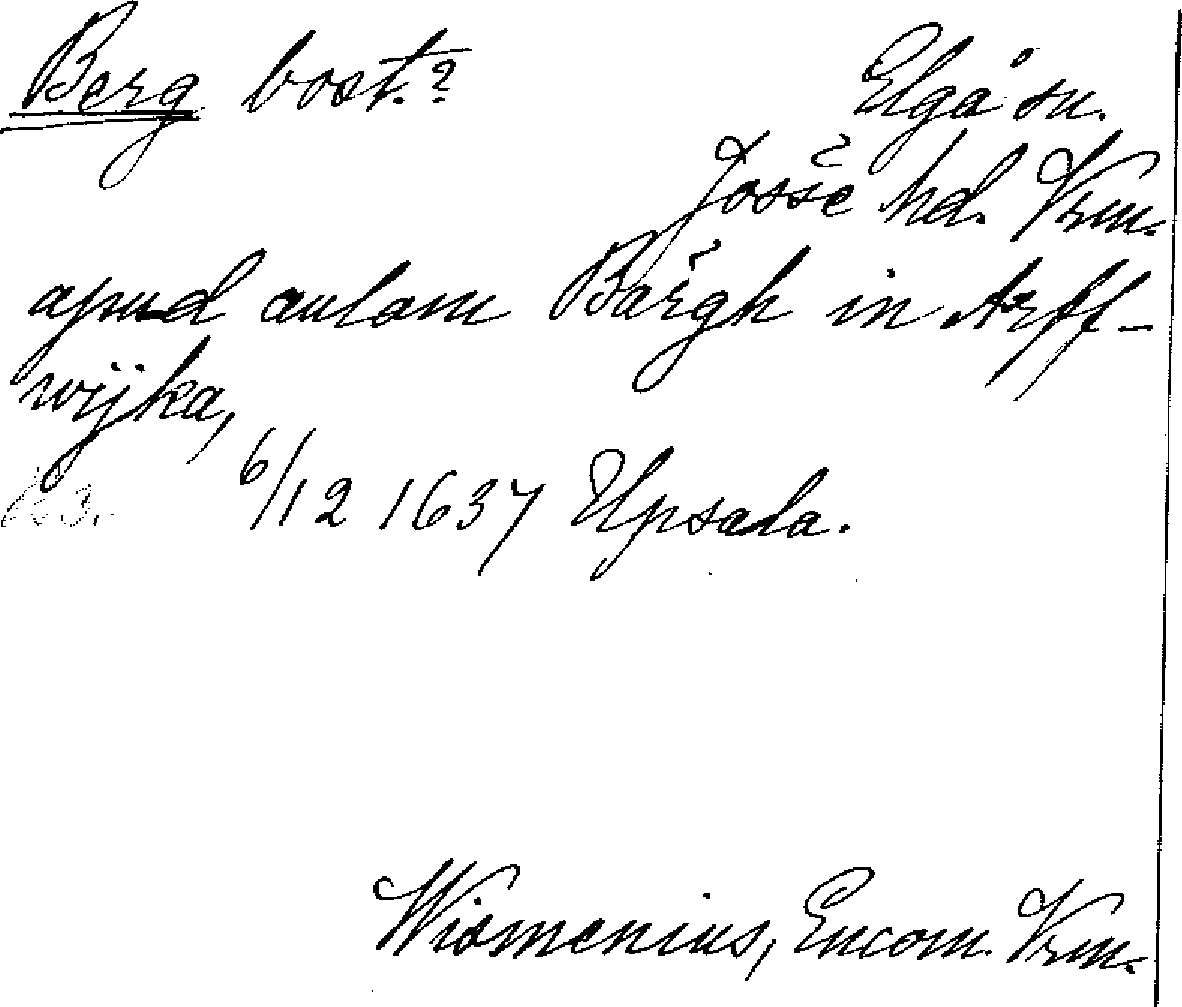 Berg bost.? Elgå sn.
Jösse hd. Vrm.
apud aulam Bärgh in Arff-
wijka,
6/12 1637 Upsala.
Wismenius, Encom. Vrm.